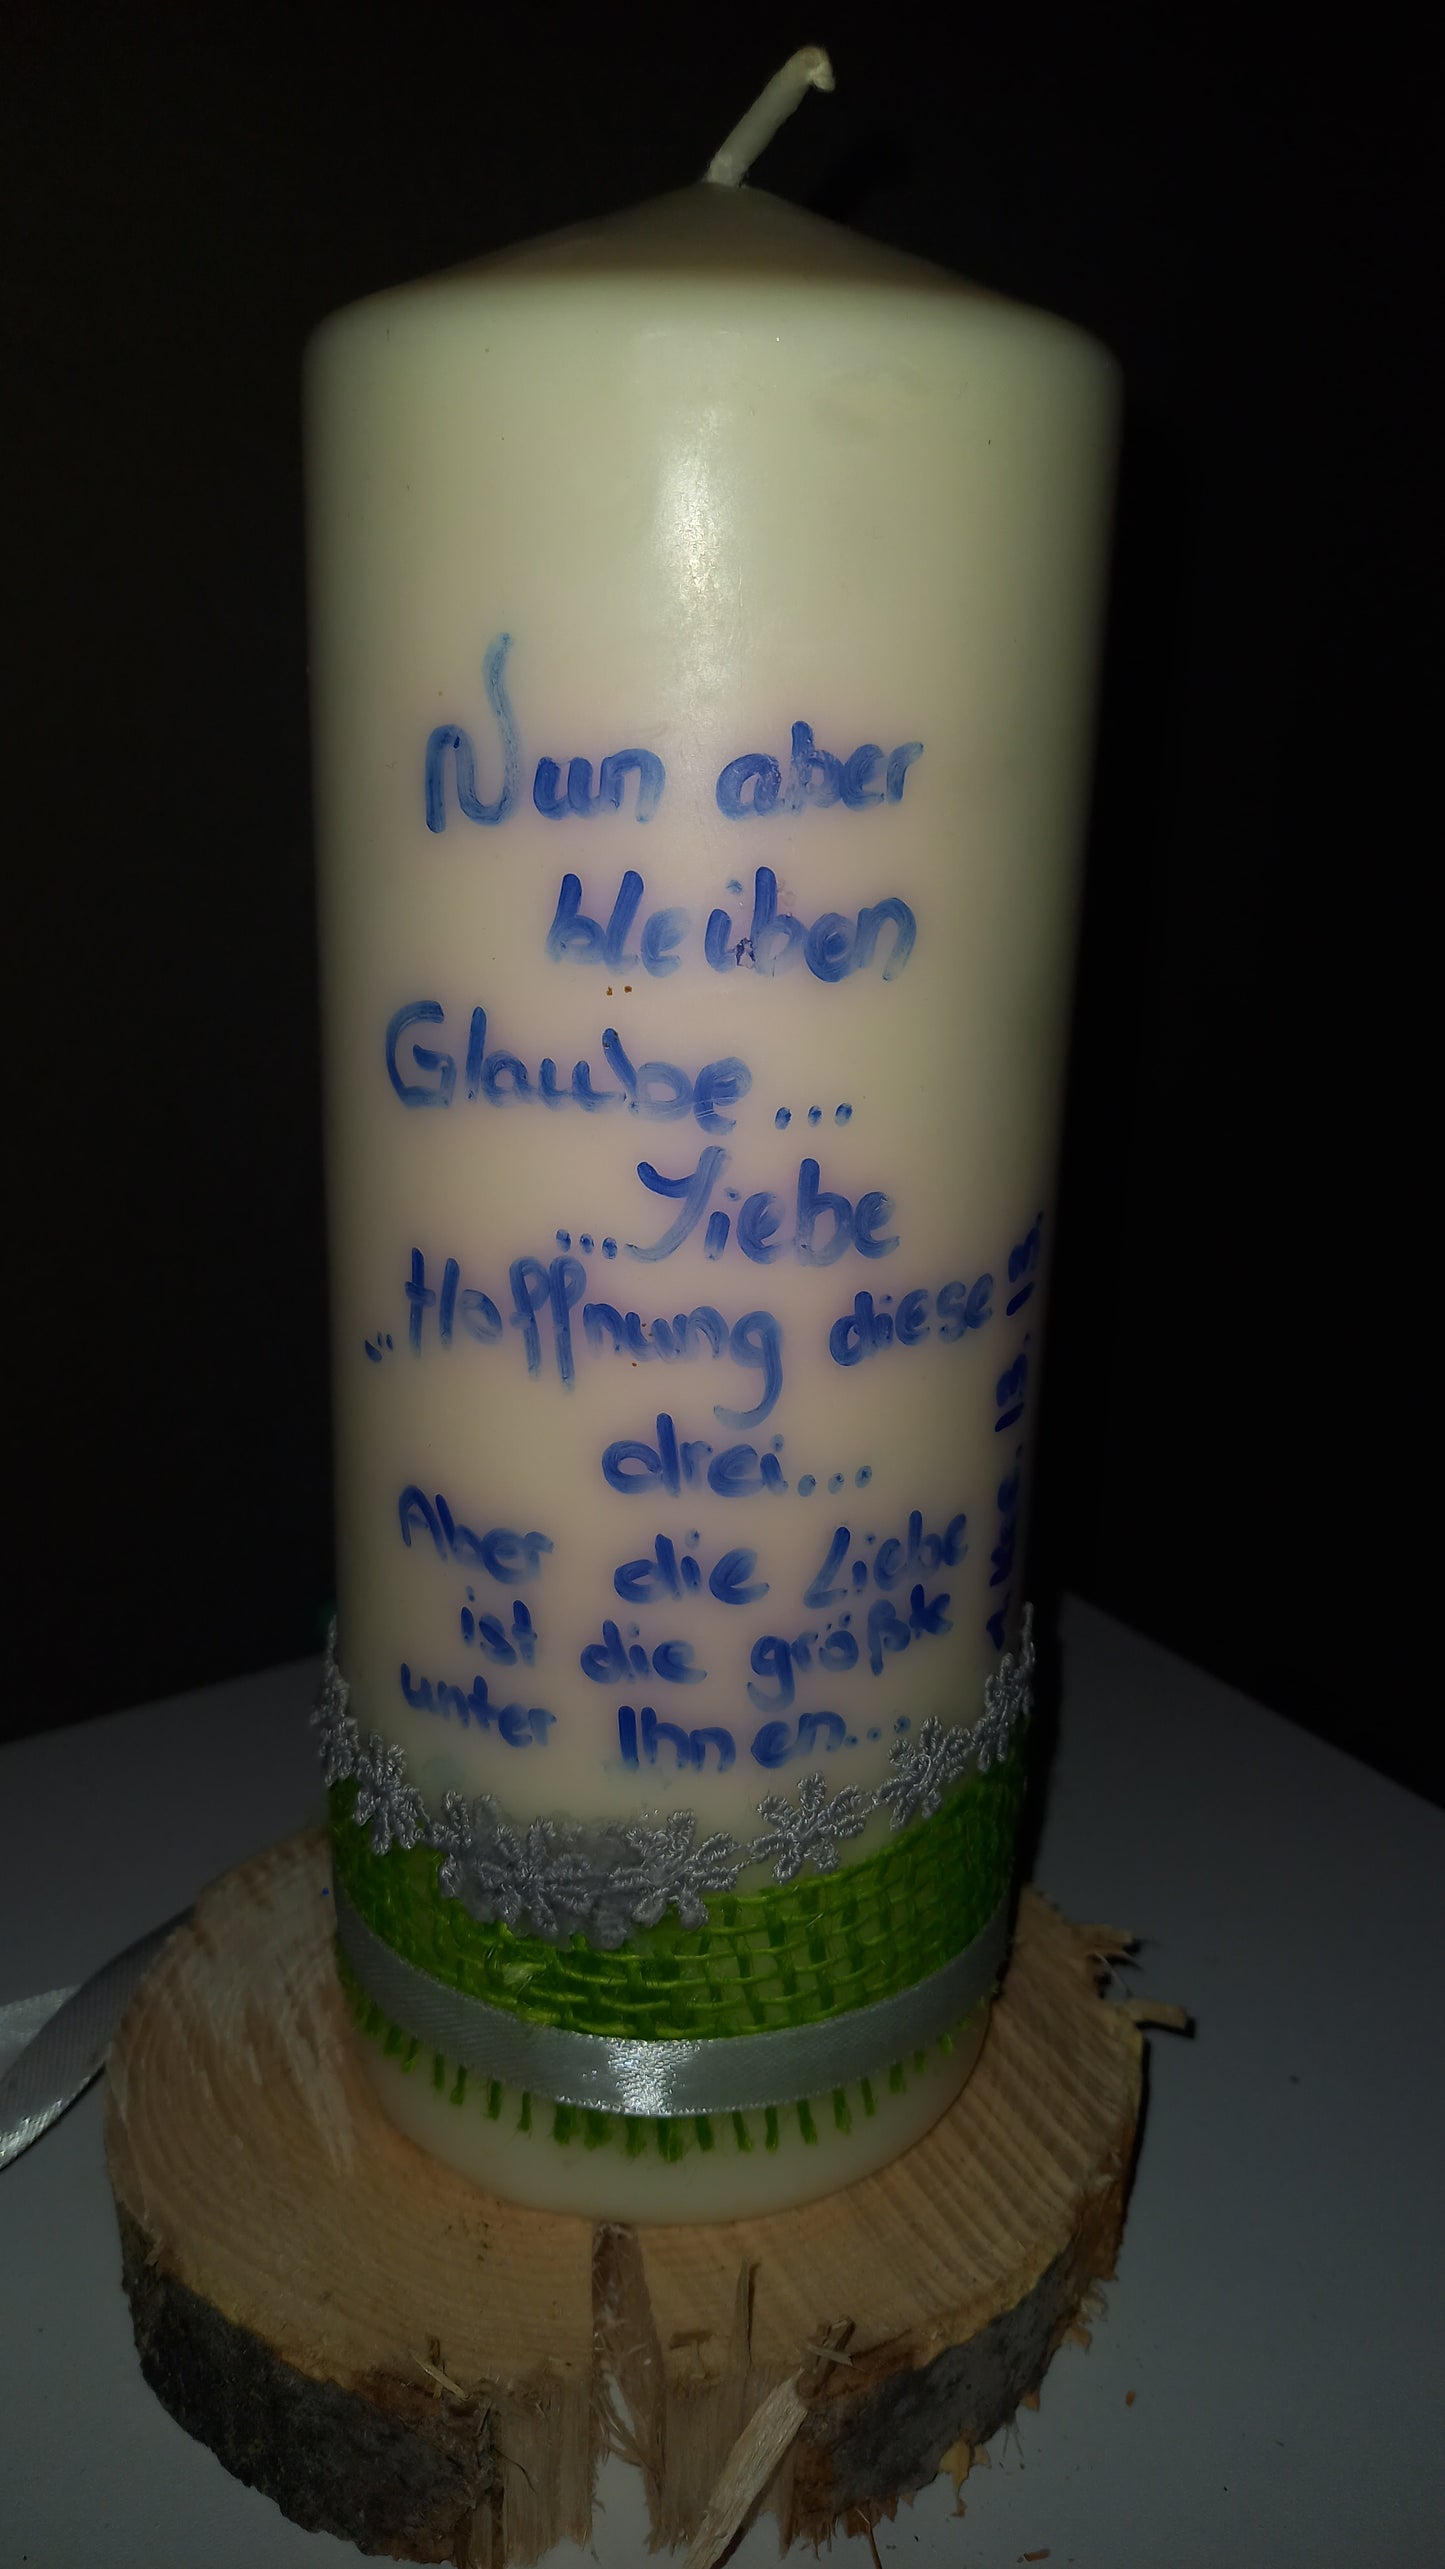 Nun aber
bleiben
Glaube...
...Liebe
...Hoffnung diese
drei...
Aber die Liebe
ist die größte
unter Ihnen...
1. Kor. 13. 13.